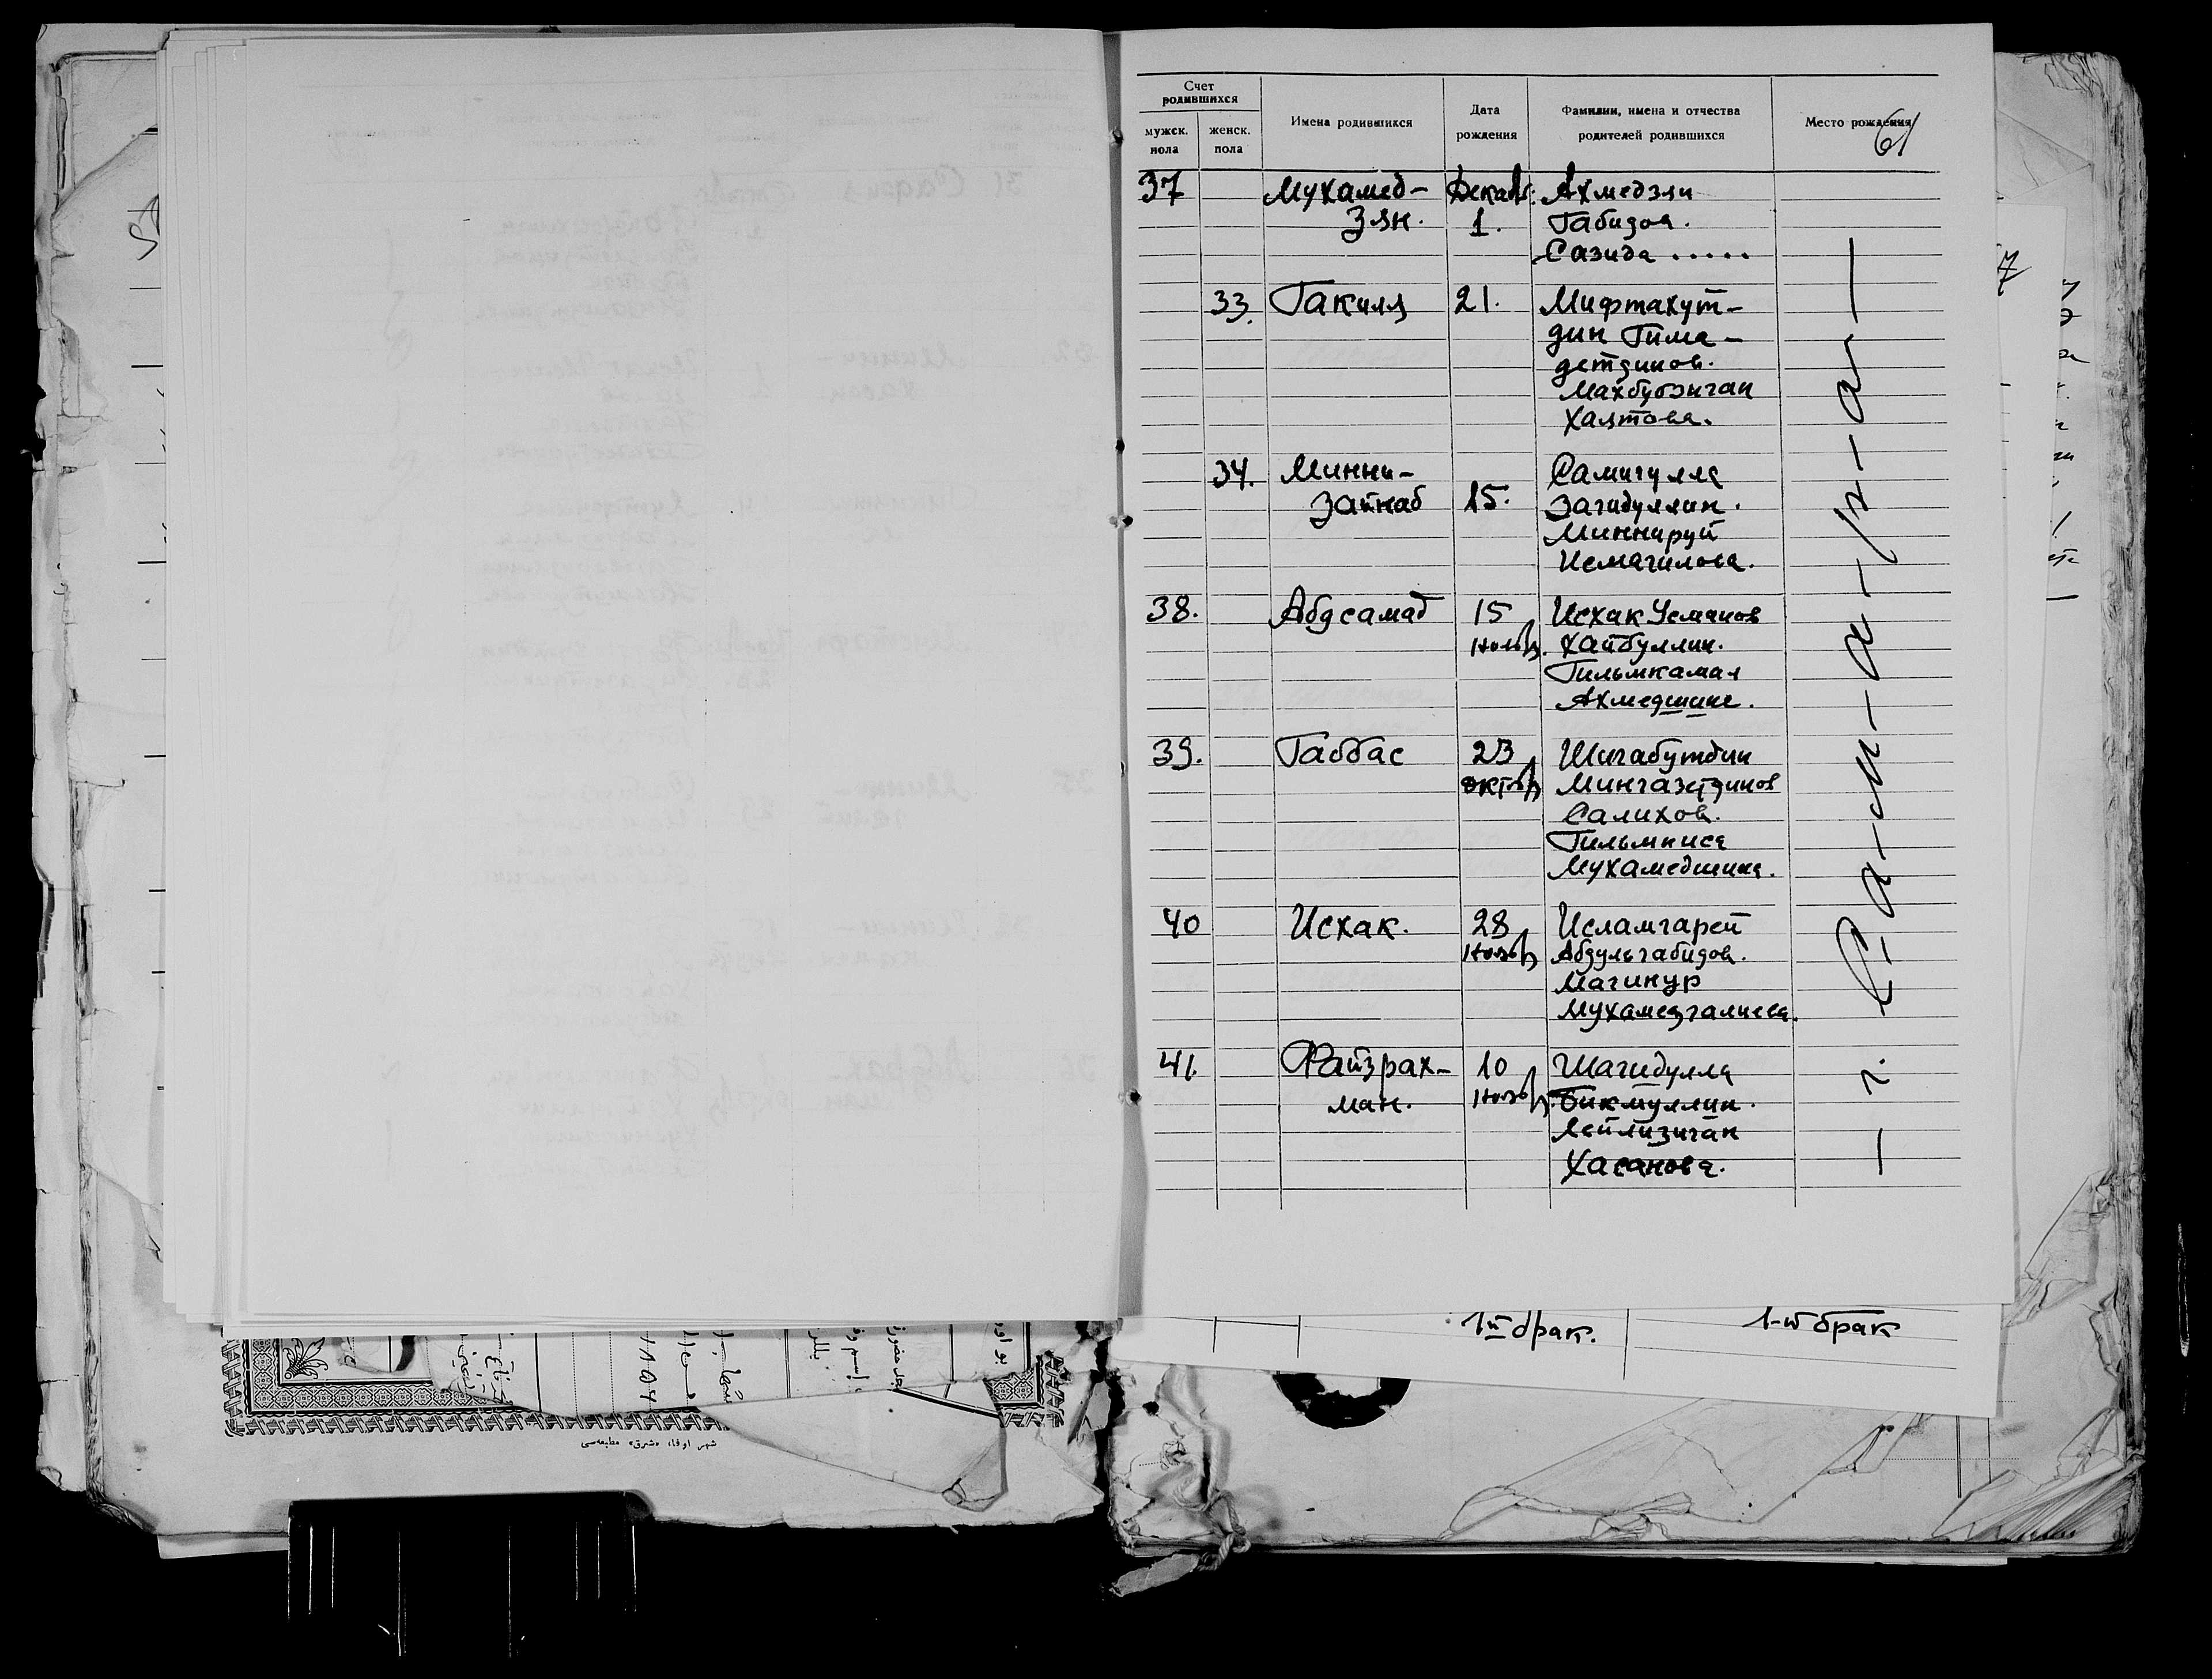 Счет
родившихся
мужск.
пола
женск.
пола
Имена родившихся
Дата
рождения
Фамилии, имена и отчества
родителей родившихся
Место рождения
61
37 Мухамед- Декабр. Ахмедзян
Зян. 1. Габидов.
Сазида .....
33. Гакиля 21. Мифтахут-
дин Гима-
детдинов.
Махбубзиган
Хаятова.
34. Минни- Самигулла
Зайнаб 15. Загидуллин.
Миннируй
Исмагилова.
38. Абдсамад 15 Исхак Усманов
Ноябр. Хайбуллин.
Гильмкамал
Ахмедшине.
39. Габбас 23 Шигабутдин
Октябр Мингазетдинов
Салихов.
Гильмниса
Мухамедшина.
40 Исхак. 28 Исламгарей
Ноябр Абдульгабидов.
Магинур
Мухамедгалиева.
41. Файзрах- 10 Шагидулла
ман. Ноябр. Бикмуллин.
Лейлизиган
Хасанова.
— г. С-а-м-а-р-а —
1й брак. 1-й брак
7
شهر اوفا، «شرق» مطبعه‌سی